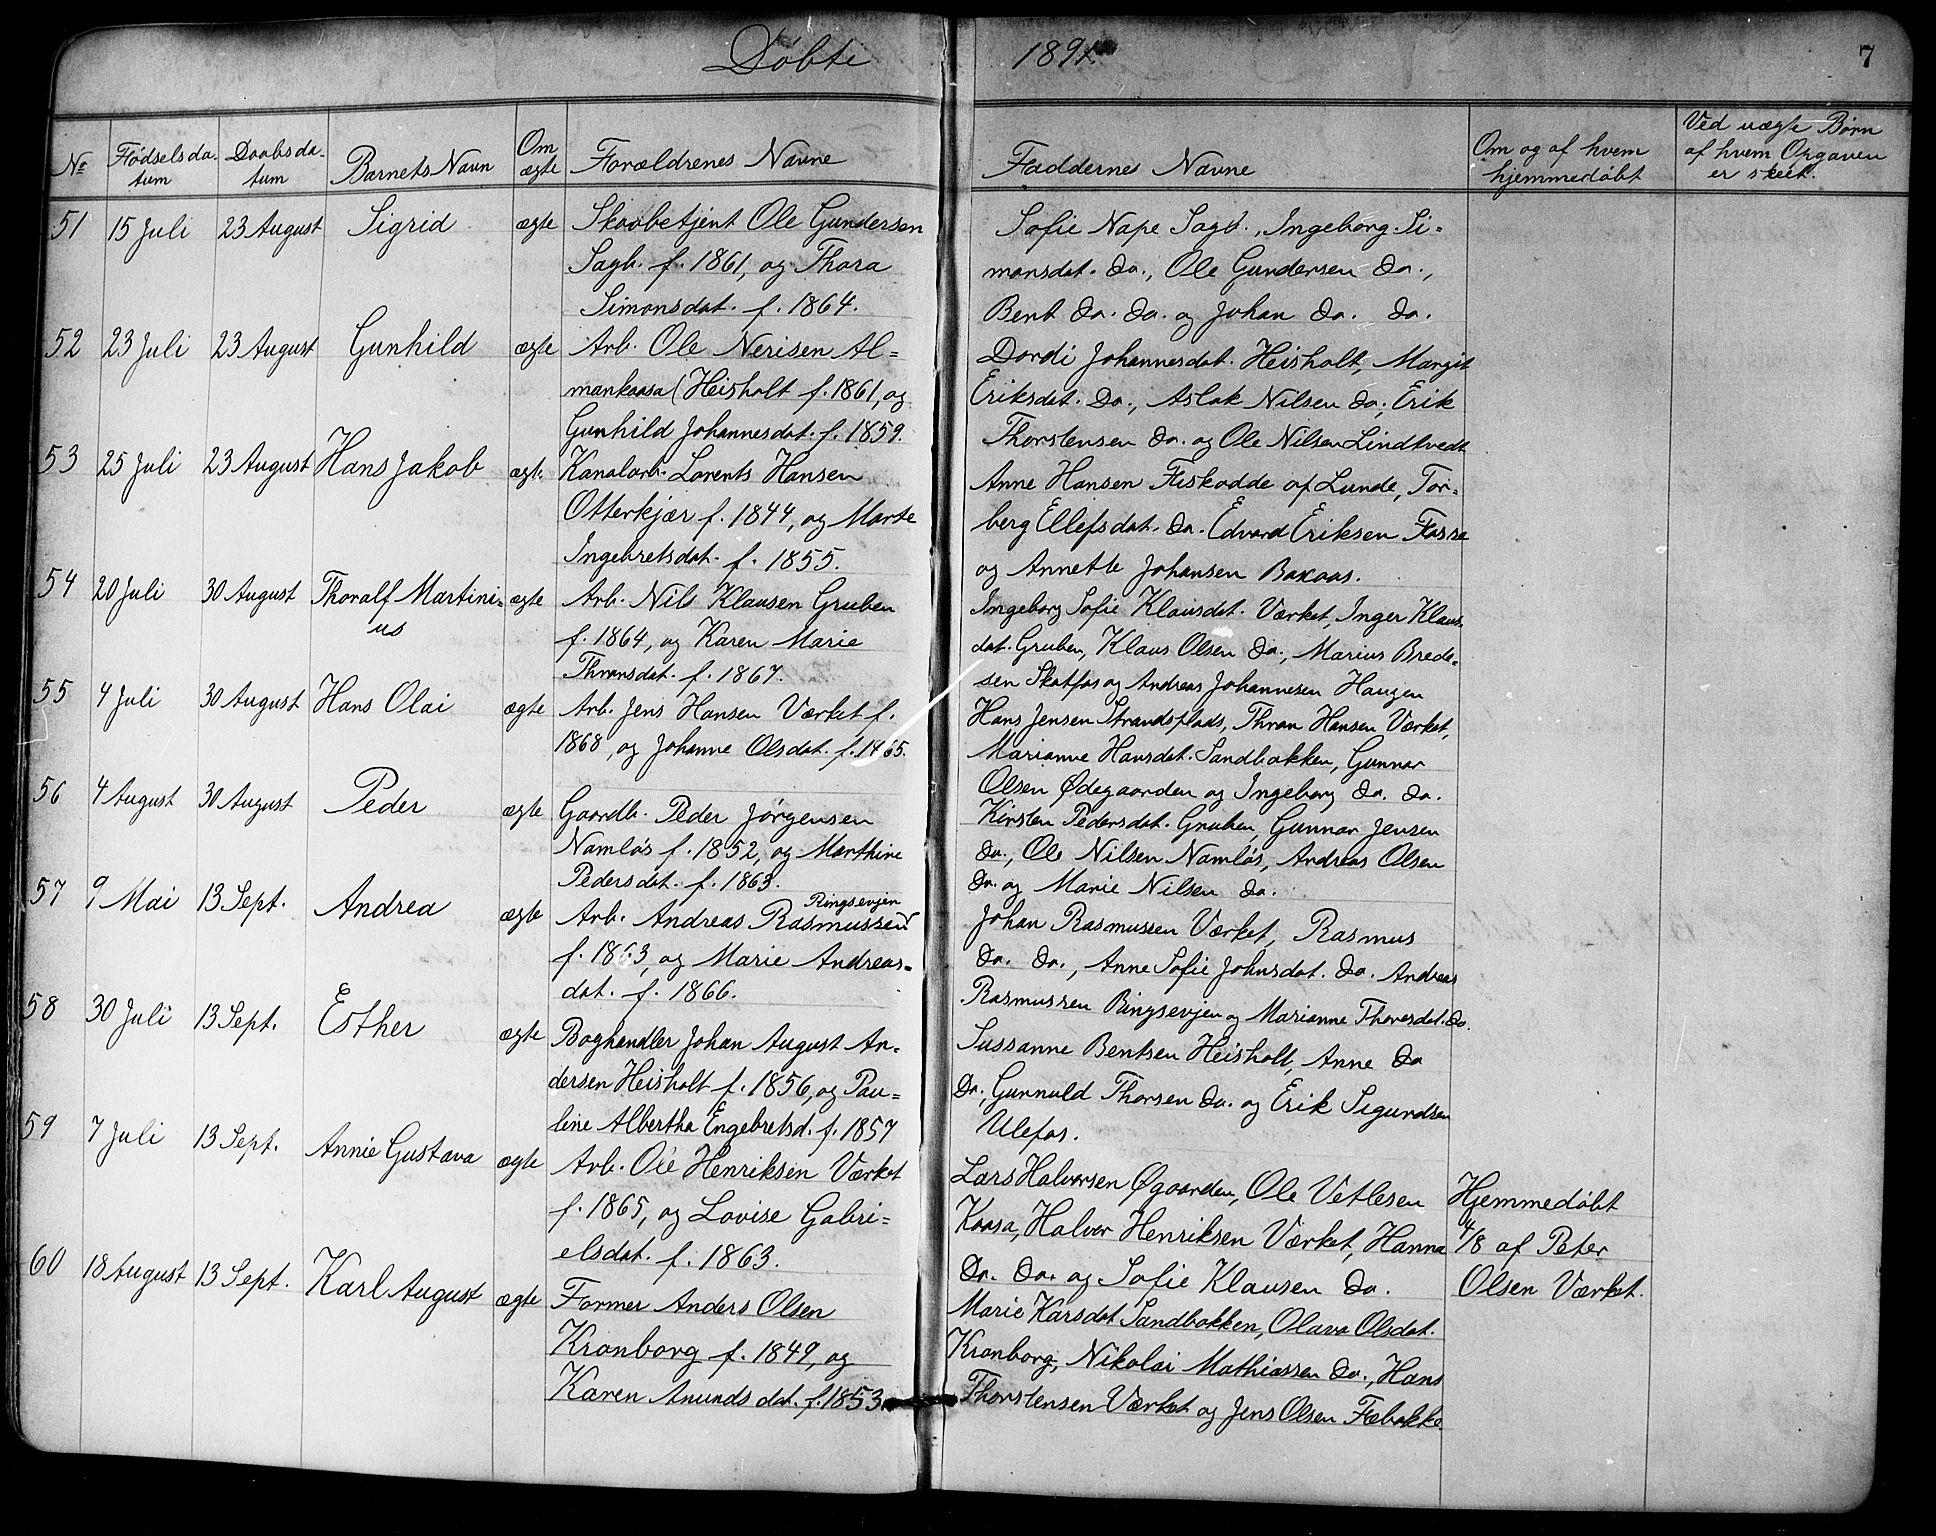 Døbte 1891. 7
No Fødselsda- Daabsda- Barnets Navn Om Forældrenes Navne Faddernes Navne Om og af hvem Ved uægte Børn
tum tum ægte hjemmedøbt af hvem Opgaven
er skeet.
51 15 Juli 23 August Sigrid ægte Skovbetjent Ole Gundersen Sofie Nape Sagb., Ingeborg Si-
Sagb. f. 1861, og Thora monsdat. Do., Ole Gundersen Do.,
Simonsdat. f. 1864. Bent Do. Do. og Johan Do. Do.
52 23 Juli 23 August Gunhild ægte Arb. Ole Nerisen Al- Dordi Johannesdat. Heisholt, Margit
mankaasa (Heisholt f. 1861, og Eriksdat. Do., Aslak Nilsen Do., Erik
Gunhild Johannesdat. f. 1859. Thorstensen Do. og Ole Nilsen Lindtvedt
53 25 Juli 23 August Hans Jakob ægt. Kanalarb. Lorents Hansen Anne Hansen Fiskodde af Lunde, Tor-
Otterkjær f. 1844, og Marte berg Ellefsdat. Do. Edvard Eriksen
Ingebretsdat. f. 1855. og Annette Johansen Baxaas.
54 20 Juli 30 August Thoralf Martini- ægte Arb. Nils Klausen Gruben Ingeborg Sofie Klausdat. Værket, Inger Klaus-
us f. 1864, og Karen Marie dat. Gruben, Klaus Olsen Do., Marius Brede-
Thronsdat. f. 1867. sen Skotfos og Andreas Johannesen Haugen
55 4 Juli 30 August Hans Olai ægte Arb. Jens Hansen Værket f. Hans Jensen Strandsplads, Thron Hansen Værket,
1868, og Johanne Olsdat. f. 1865. Marianne Hansdat. Sandbakken, Gunnar
Olsen Ødegaarden og Ingeborg Do. Do.
56 4 August 30 August Peder ægte Gaardb. Peder Jørgensen Kirsten Pedersdat. Gruben, Gunnar Jensen
Namløs f. 1852, og Marthine Do., Ole Nilsen Namløs, Andreas Olsen
Pedersdat. f. 1863. Do. og Marie Nilsen Do.
Ringsevjen
57 9 Mai 13 Sept. Andrea ægte Arb. Andreas Rasmussen Johan Rasmussen Værket, Rasmus
f. 1863, og Marie Andreas- Do. Do., Anne Sofie Johnsdat. Do. Andreas
dat. f. 1866. Rasmussen Ringsevjen og Marianne Thoresdat. Do.
58 30 Juli 13 Sept. Esther ægte Boghandler Johan August An- Sussanne Bentsen Heisholt, Anne Do
dersen Heisholt f. 1856, og Pau- Do., Gunnuld Thorsen Do. og Erik Sigurdsen
line Albertha Engebretsd. f. 1857 Ulefos.
59 7 Juli 13 Sept. Annie Gustava ægte Arb. Ole Henriksen Værket Lars Halvorsen Øgaarden, Ole Vetlesen Hjemmedøbt
f. 1865, og Lovise Gabri- Kaasa, Halvor Henriksen Værket, Hanna 4/8 af Peter
elsdat. f. 1863. Do. Do. og Sofie Klausen Do. Olsen Værket.
60 18 August 13 Sept. Karl August ægte Former Anders Olsen Marie Larsdat. Sandbakken, Olava Olsdat.
Kronborg f. 1849, og Kronborg, Nikolai Mathiassen Do., Hans
Karen Anundsdat. f. 1853. Thorstensen Værket og Jens Olsen Febakke.